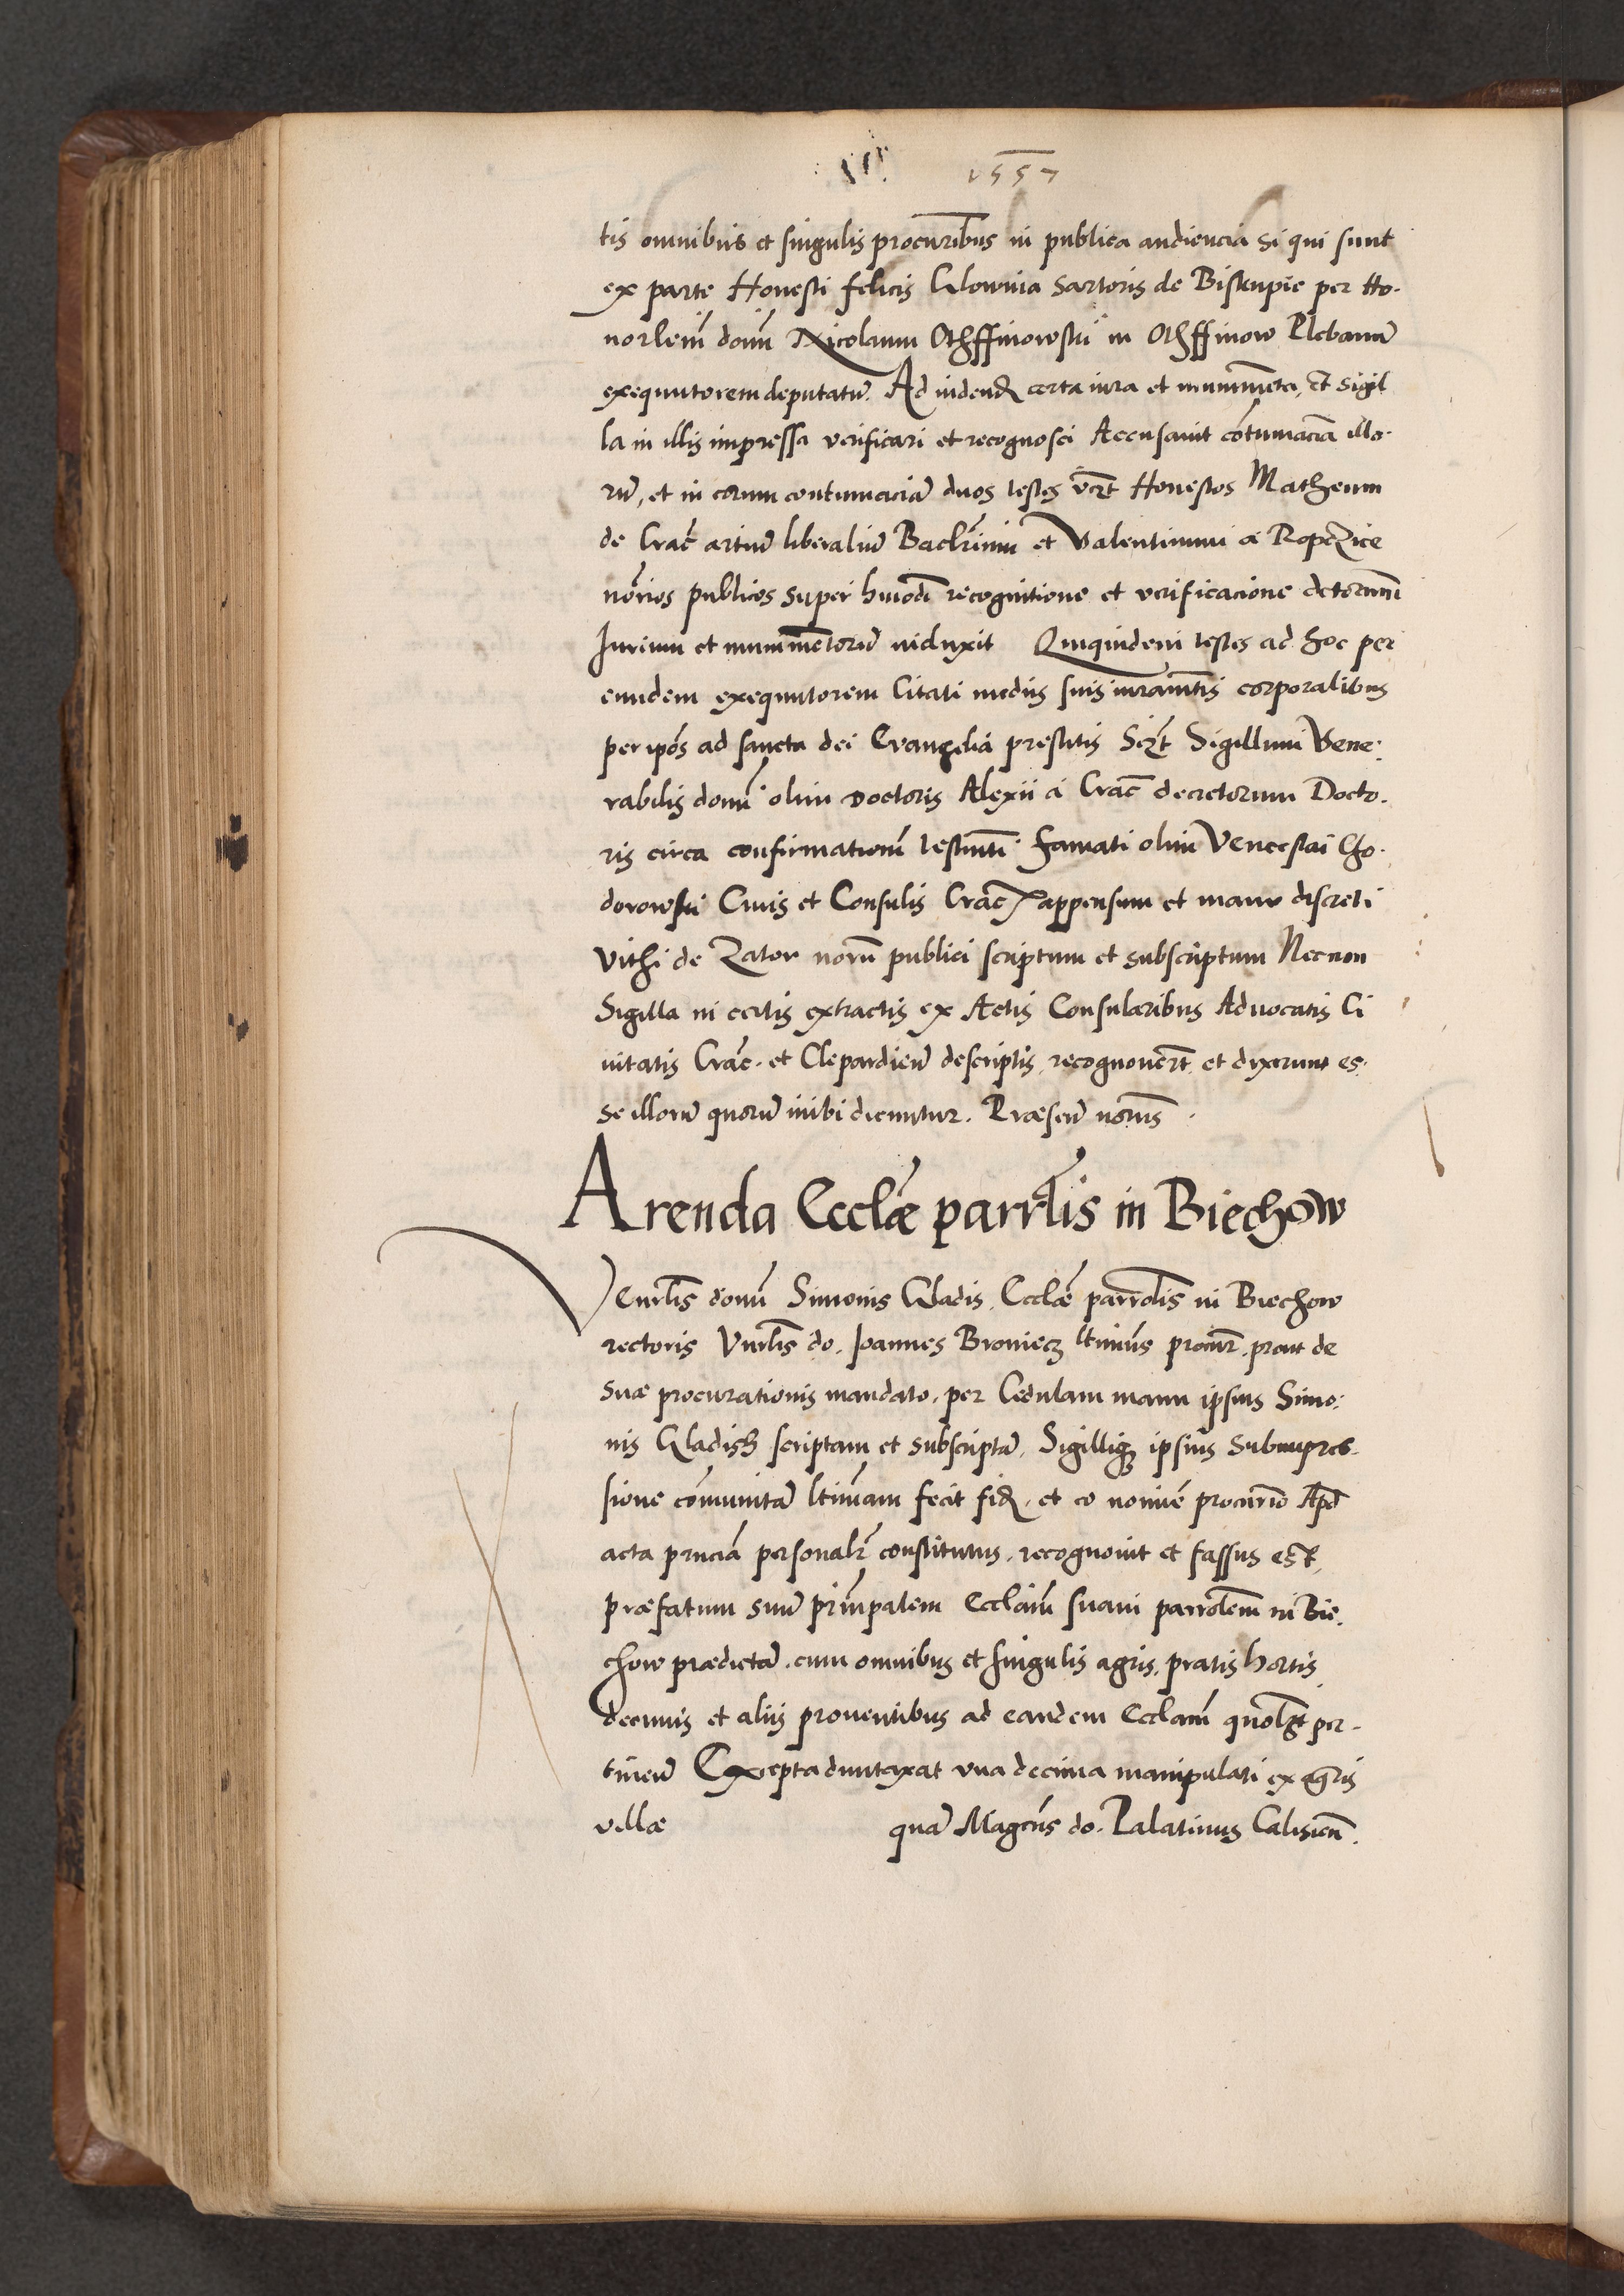 1557
tis omnibus et singulis procurībus in publica audiencia si qui sunt
ex parte Honesti felicis Glownia sartoris de Biskupie per Ho-
norlem̄ dom̄ Nicolaum Othffinowski in Othffinow Plebanū
exequutorem deputatū. Ad videnđ certa iura et munīmēta, et sigil
la in illis impressa verificari et recognosci Accusauit cōtumaciā illo-
rū, et in eorum contumaciā duos testes vēt Honestos Matheum
de Crac̄ artiū liberaliū Bacl̄rium et Valentinum a Ropczice
nōrios publicos super hm̄oī recognitione et verificacione dctorum̄
Iurium et munimētorū induxit Quiquidem testes ad hoc per
eundem exequutorem Citati medijs suis iuramētis corporalibus
per ipōs ad sancta dei Evangelia prestitis Sigillum Vene-
rabilis domī olim Doctoris Alexii a Crac̄ decretorum Docto-
ris circa confirmationem̄ testam̄ti famati olim Venceslai Cho-
dorowski Ciuis et Consulis Crac̄ appensum et manu discreti
Vithi de Zator norīi publici scriptum et subscriptum Necnon
Sigilla in certis extractis ex Actis Consularibus Aduocatis Ci
uitatis Crac̄. et Clepardien̄ descriptis, recognouert̄ et dixerunt es-
se illorū quorū inibi dicuntur. Præsen̄ notis̄
Arenda Ecclæ parrlis in Biechow
Venrlis domī Simonis Gladis, Ecclæ parrolis in Biechow
rectoris Vnrlis do. Ioannes Broniecz ltimus procur̄. prout de
suæ procurationis mandato, per Cedulam manu ipsius Simo-
nis Gladisch scriptam et subscriptā, Sigilliq3 ipsius subimpres-
sione cōmunitā ltimam fecit fiđ, et eo nomīe procurio Apđ
acta pnciā personalr̄ constitutus, recognouit et fassus est,
præfatum suū principalem Ecclām suam parrolem̄ in Bie-
chow prædictā, cum omnibus et singulis agris, pratis hortis,
decimis et aliis prouentibus ad eandem Ecclām quoltƺ per-
tinen̄ Excepta duntaxat vna decima manipulari ex agris
villæ quā Magcus do. Palatinus Calisien̄.